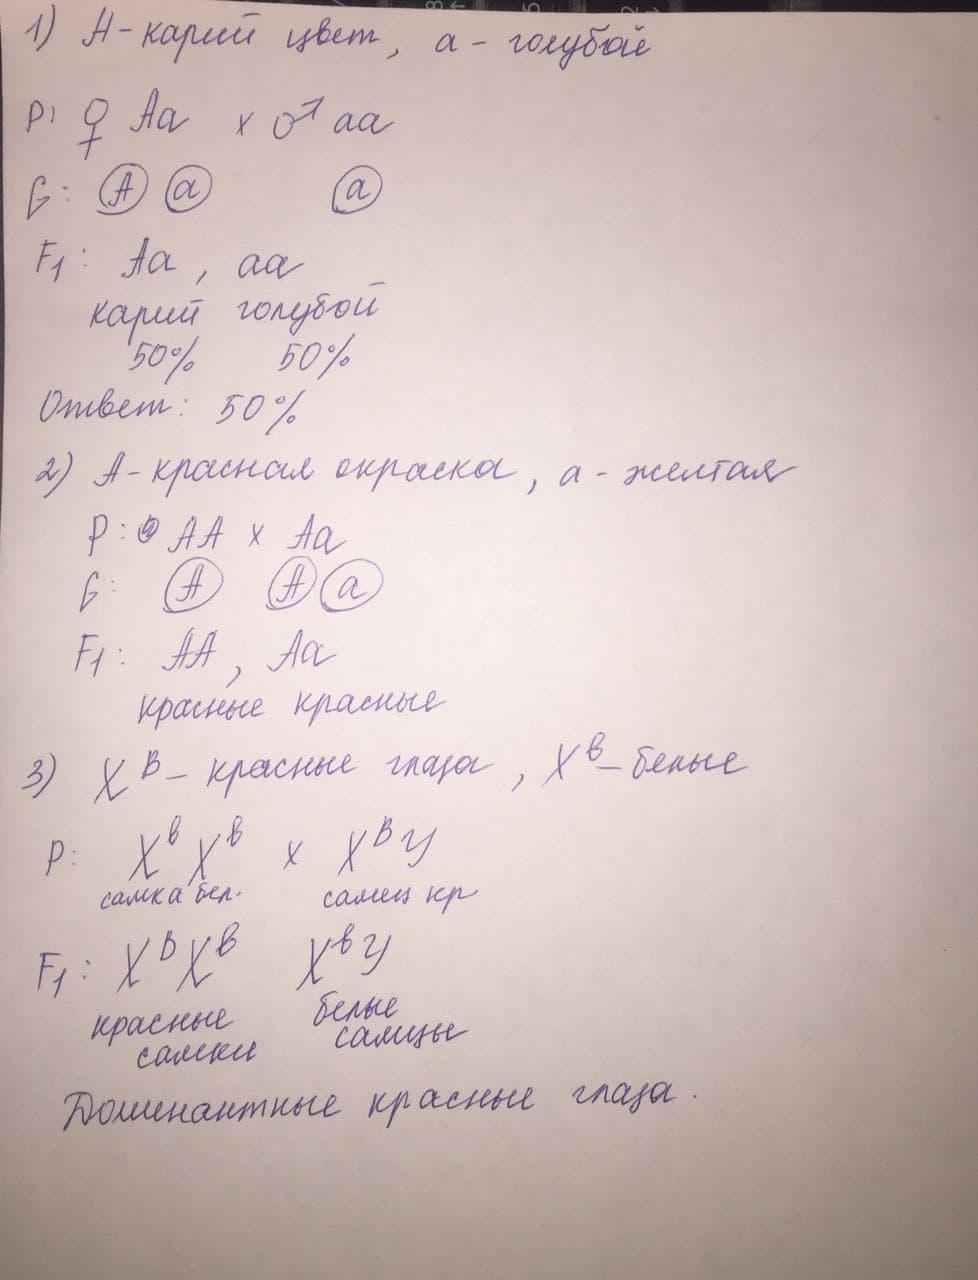 1) А - карий цвет, а - голубой
P: ♀ Aa x ♂ aa
G: A a a
F1: Aa, aa
карий голубой
50% 50%
Ответ: 50%
2) А - красная окраска, а - желтая
P: AA x Aa
G: A A a
F1: AA, Aa
красные красные
3) X^B - красные глаза, X^b - белые
P: X^b X^b x X^B У
самка бел. самец кр
F1: X^B X^b X^b У
красные белые
самки самцы
Доминантные красные глаза.